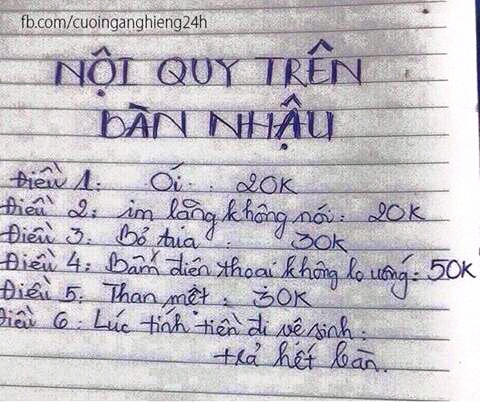 fb.com/cuoinganghieng24h
NỘI QUY TRÊN
BÀN NHẬU
Điều 1: Ói: 20K
Điều 2: im lặng không nói: 20K
Điều 3: Bỏ túa: 30K
Điều 4: Bấm điện thoại không lo uống: 50K
Điều 5: Than mệt: 30K
Điều 6: Lúc tính tiền đi vệ sinh:
trả hết bàn.